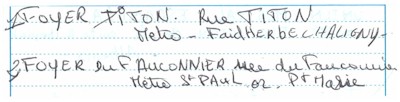 1) FOYER TITON. Rue TITON
Metro - FaidHERBECHALIGNY-
2) FOYER du FAUCONNIER rue du Fauconnier
Métro St PAUL or Pt Marie